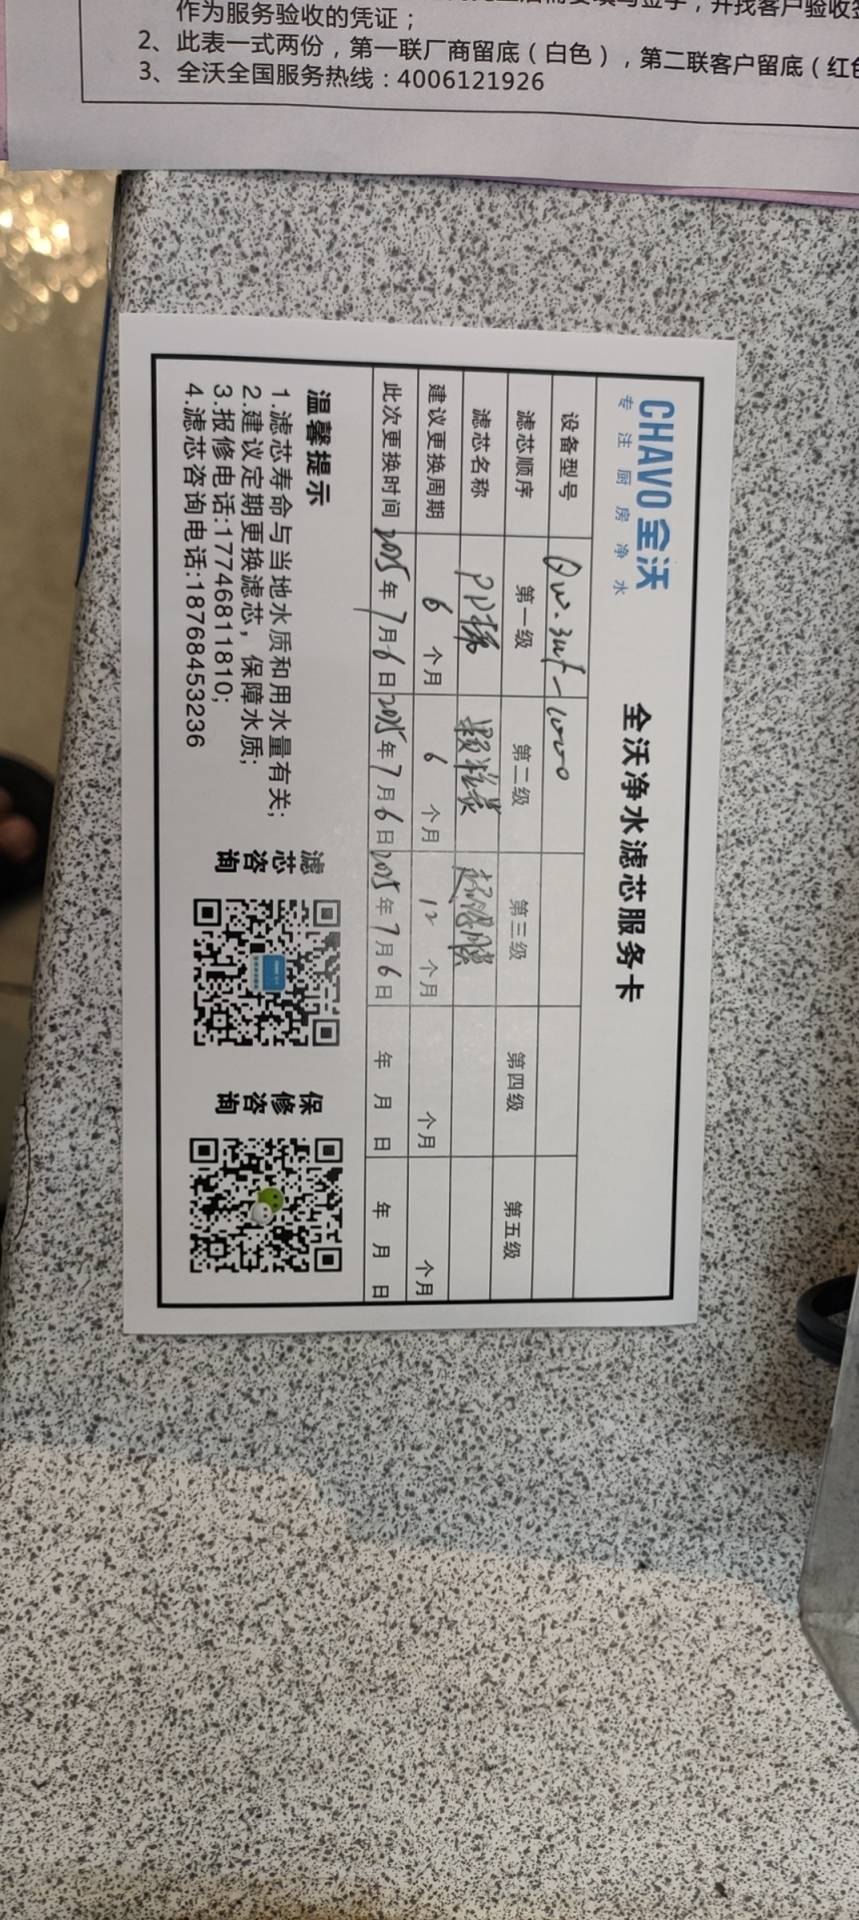 作为服务验收的凭证；
2、此表一式两份，第一联厂商留底（白色），第二联客户留底（红色
3、全沃全国服务热线：4006121926
CHAVO 全沃
专注厨房净水
全沃净水滤芯服务卡
设备型号
滤芯顺序 第一级 第二级 第三级 第四级 第五级
滤芯名称 PP棉 颗粒炭 超滤膜
建议更换周期 6 个月 6 个月 12 个月 个月 个月
此次更换时间 2025年7月6日 2025年7月6日 2025年7月6日 年 月 日 年 月 日
温馨提示
1.滤芯寿命与当地水质和用水量有关;
2.建议定期更换滤芯，保障水质;
3.报修电话:17746811810;
4.滤芯咨询电话:18768453236
滤芯咨询
保修咨询